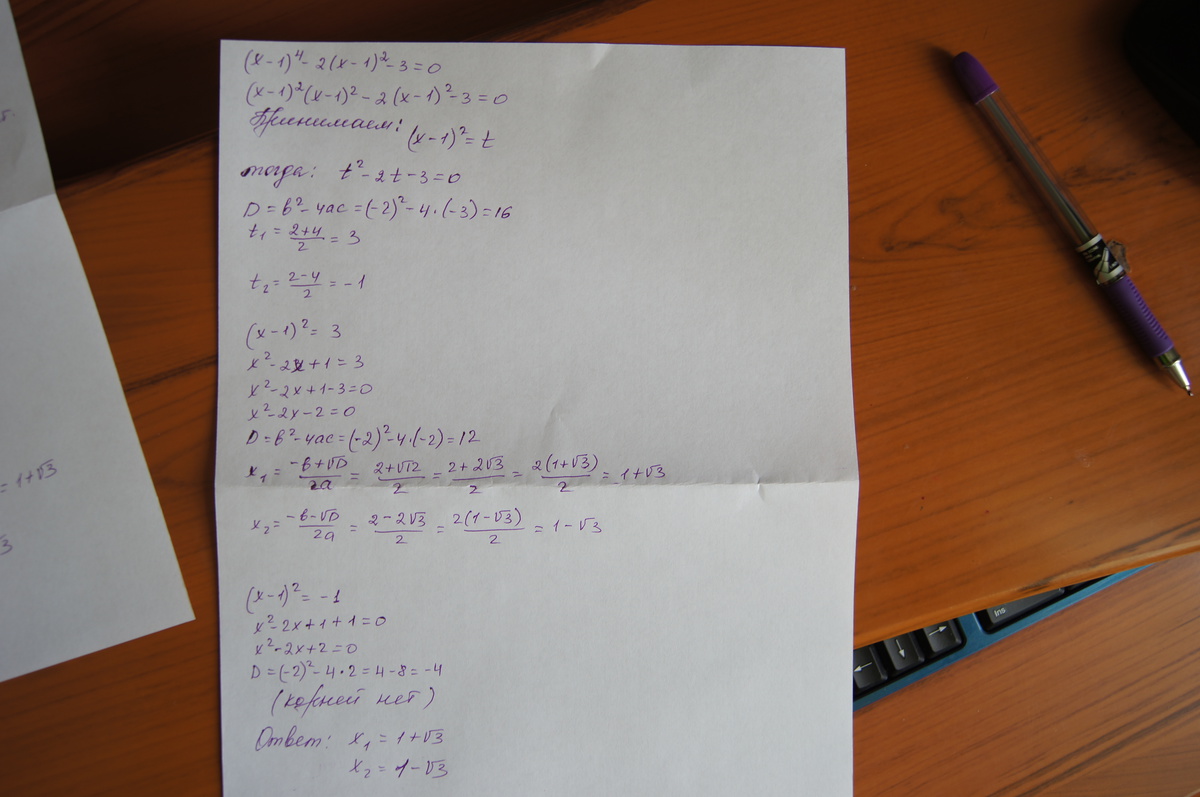 (x-1)⁴-2(x-1)²-3=0
(x-1)²(x-1)²-2(x-1)²-3=0
Принимаем: (x-1)²=t
тогда: t²-2t-3=0
D=b²-4ac=(-2)²-4·(-3)=16
t₁=\frac{2+4}{2}=3
t₂=\frac{2-4}{2}=-1
(x-1)²=3
x²-2x+1=3
x²-2x+1-3=0
x²-2x-2=0
D=b²-4ac=(-2)²-4·(-2)=12
x₁=\frac{-b+√D}{2a}=\frac{2+√12}{2}=\frac{2+2√3}{2}=\frac{2(1+√3)}{2}=1+√3
x₂=\frac{-b-√D}{2a}=\frac{2-2√3}{2}=\frac{2(1-√3)}{2}=1-√3
(x-1)²=-1
x²-2x+1+1=0
x²-2x+2=0
D=(-2)²-4·2=4-8=-4
(корней нет)
Ответ: x₁=1+√3
x₂=1-√3
=1+√3
Ins